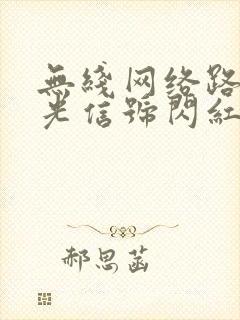 無綫网络路
光信號閃紅
郝思菡